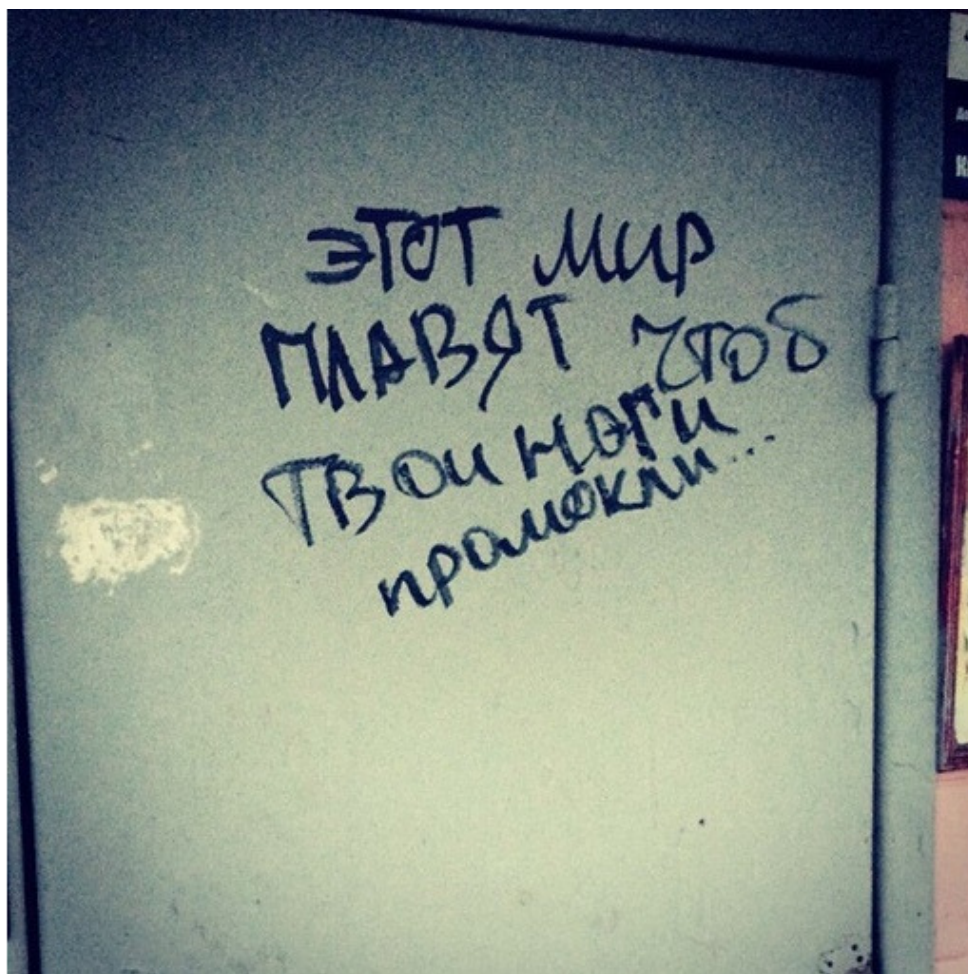 ЭТОТ МИР
ПЛАВЯТ ЧТОБ
ТВОИ НОГИ
промокли...